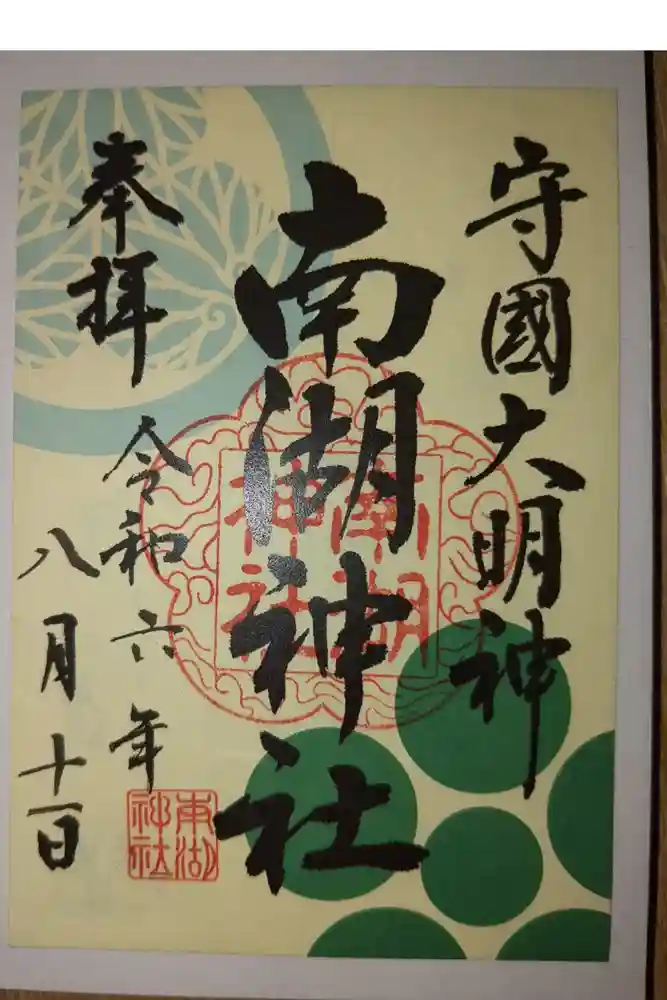 守國大明神
南湖神社
南湖
神社
奉拝
令和六年
八月十一日
南湖
神社